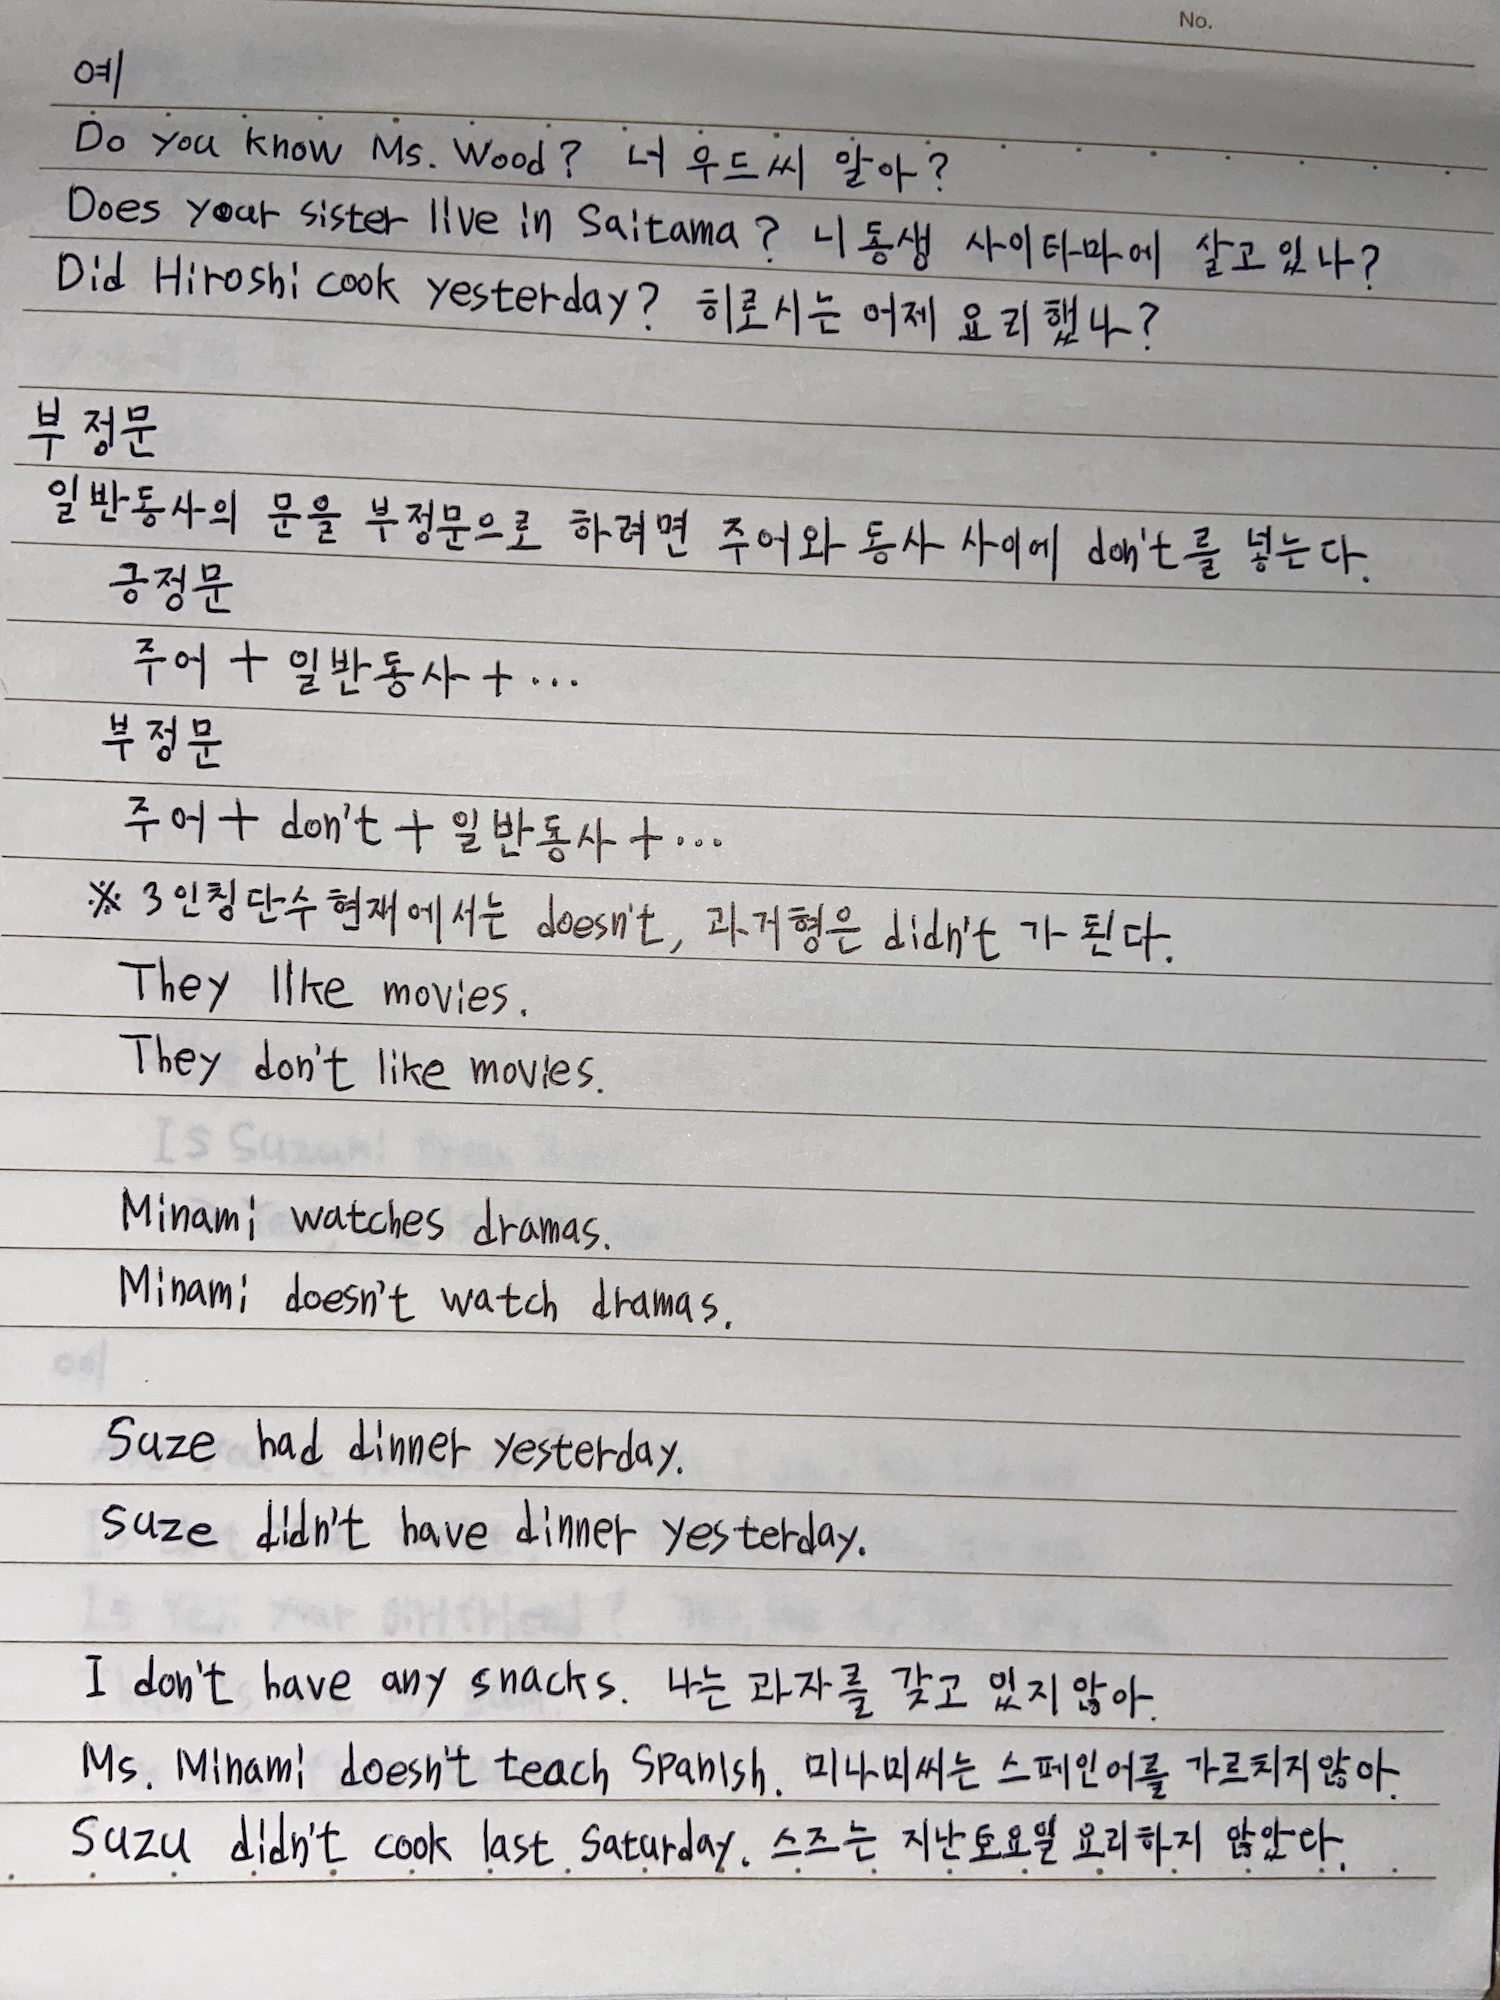 No.
예
Do you know Ms. Wood? 너 우드씨 알아?
Does your sister live in Saitama? 니 동생 사이타마에 살고있나?
Did Hiroshi cook yesterday? 히로시는 어제 요리했나?
부정문
일반동사의 문을 부정문으로 하려면 주어와 동사 사이에 don't를 넣는다.
긍정문
주어 + 일반동사 + ...
부정문
주어 + don't + 일반동사 + ...
※ 3인칭단수현재에서는 doesn't, 과거형은 didn't 가 된다.
They like movies.
They don't like movies.
Minami watches dramas.
Minami doesn't watch dramas.
Suze had dinner yesterday.
Suze didn't have dinner yesterday.
I don't have any snacks. 나는 과자를 갖고 있지않아.
Ms. Minami doesn't teach Spanish. 미나미씨는 스페인어를 가르치지않아.
Suzu didn't cook last Saturday. 스즈는 지난토요일 요리하지 않았다.